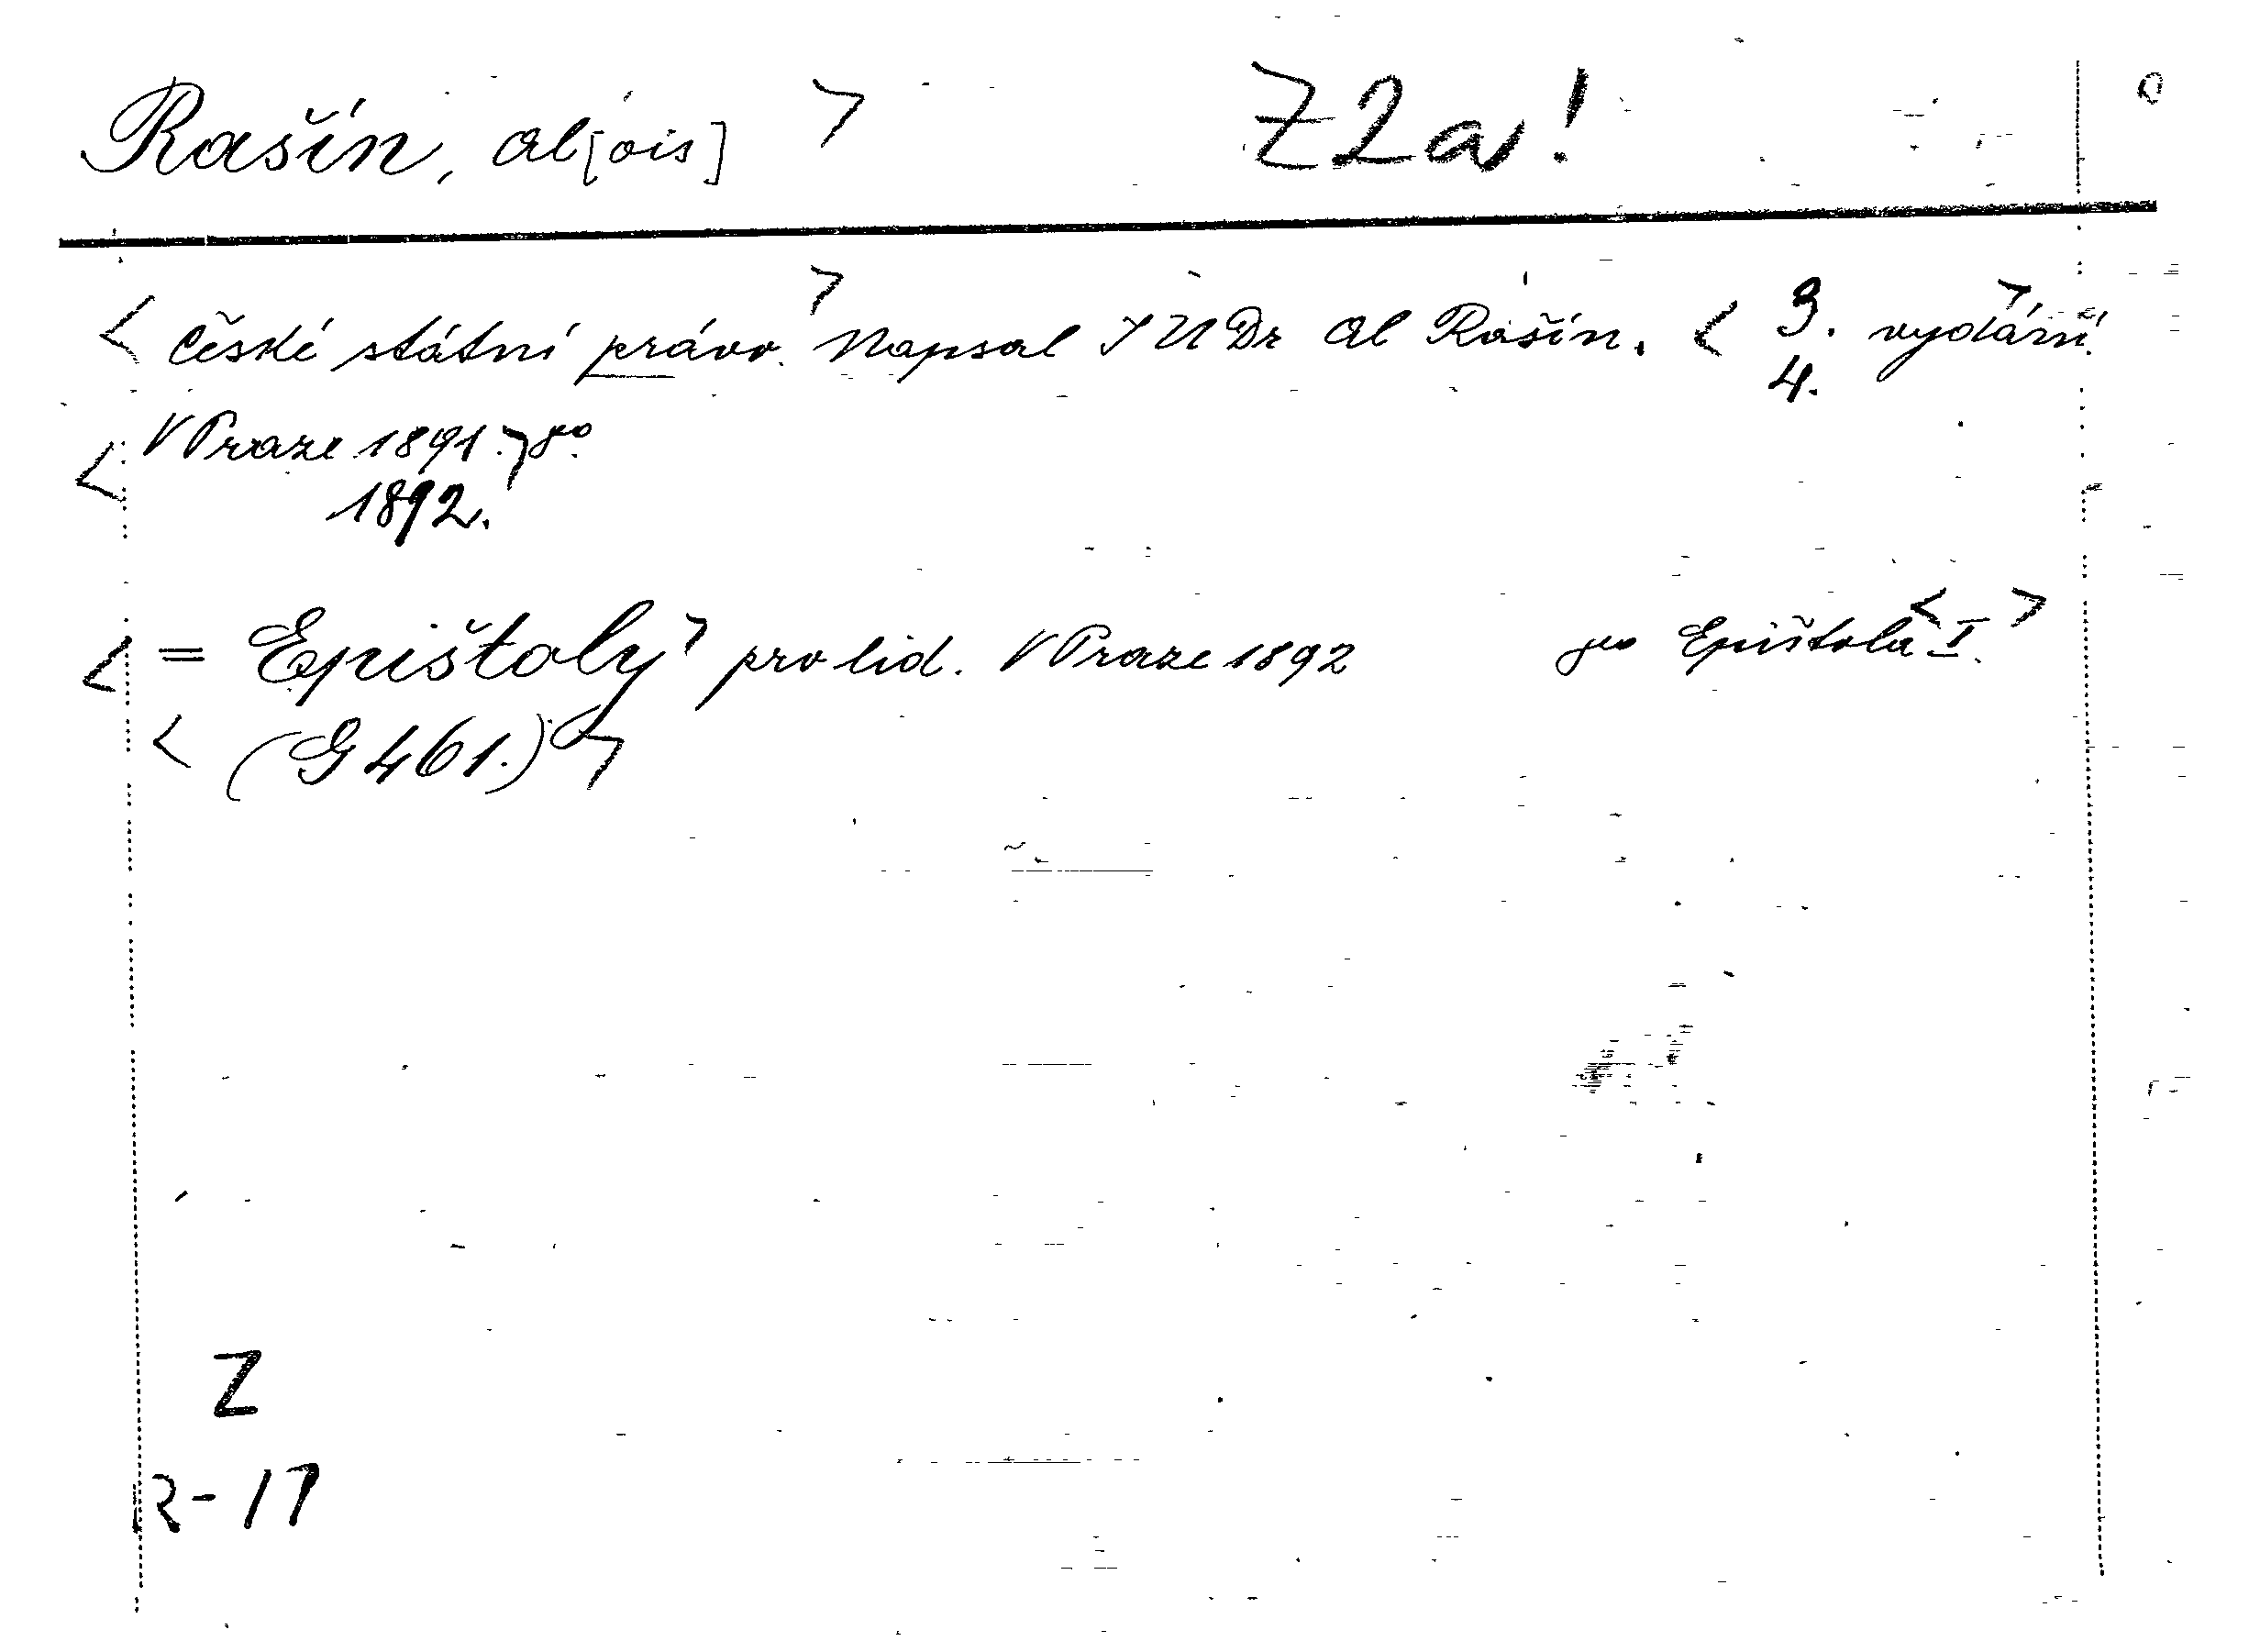 Rašín, Al[ois] > Z2a!
< České státní právo. > Napsal JUDr Al Rašín. < 3. vydání. >
4.
< V Praze 1891. > 8º
1892.
< = Epištoly > pro lid. V Praze 1892 8º Epištola < I. >
< (G 461.) >
Z
R-17